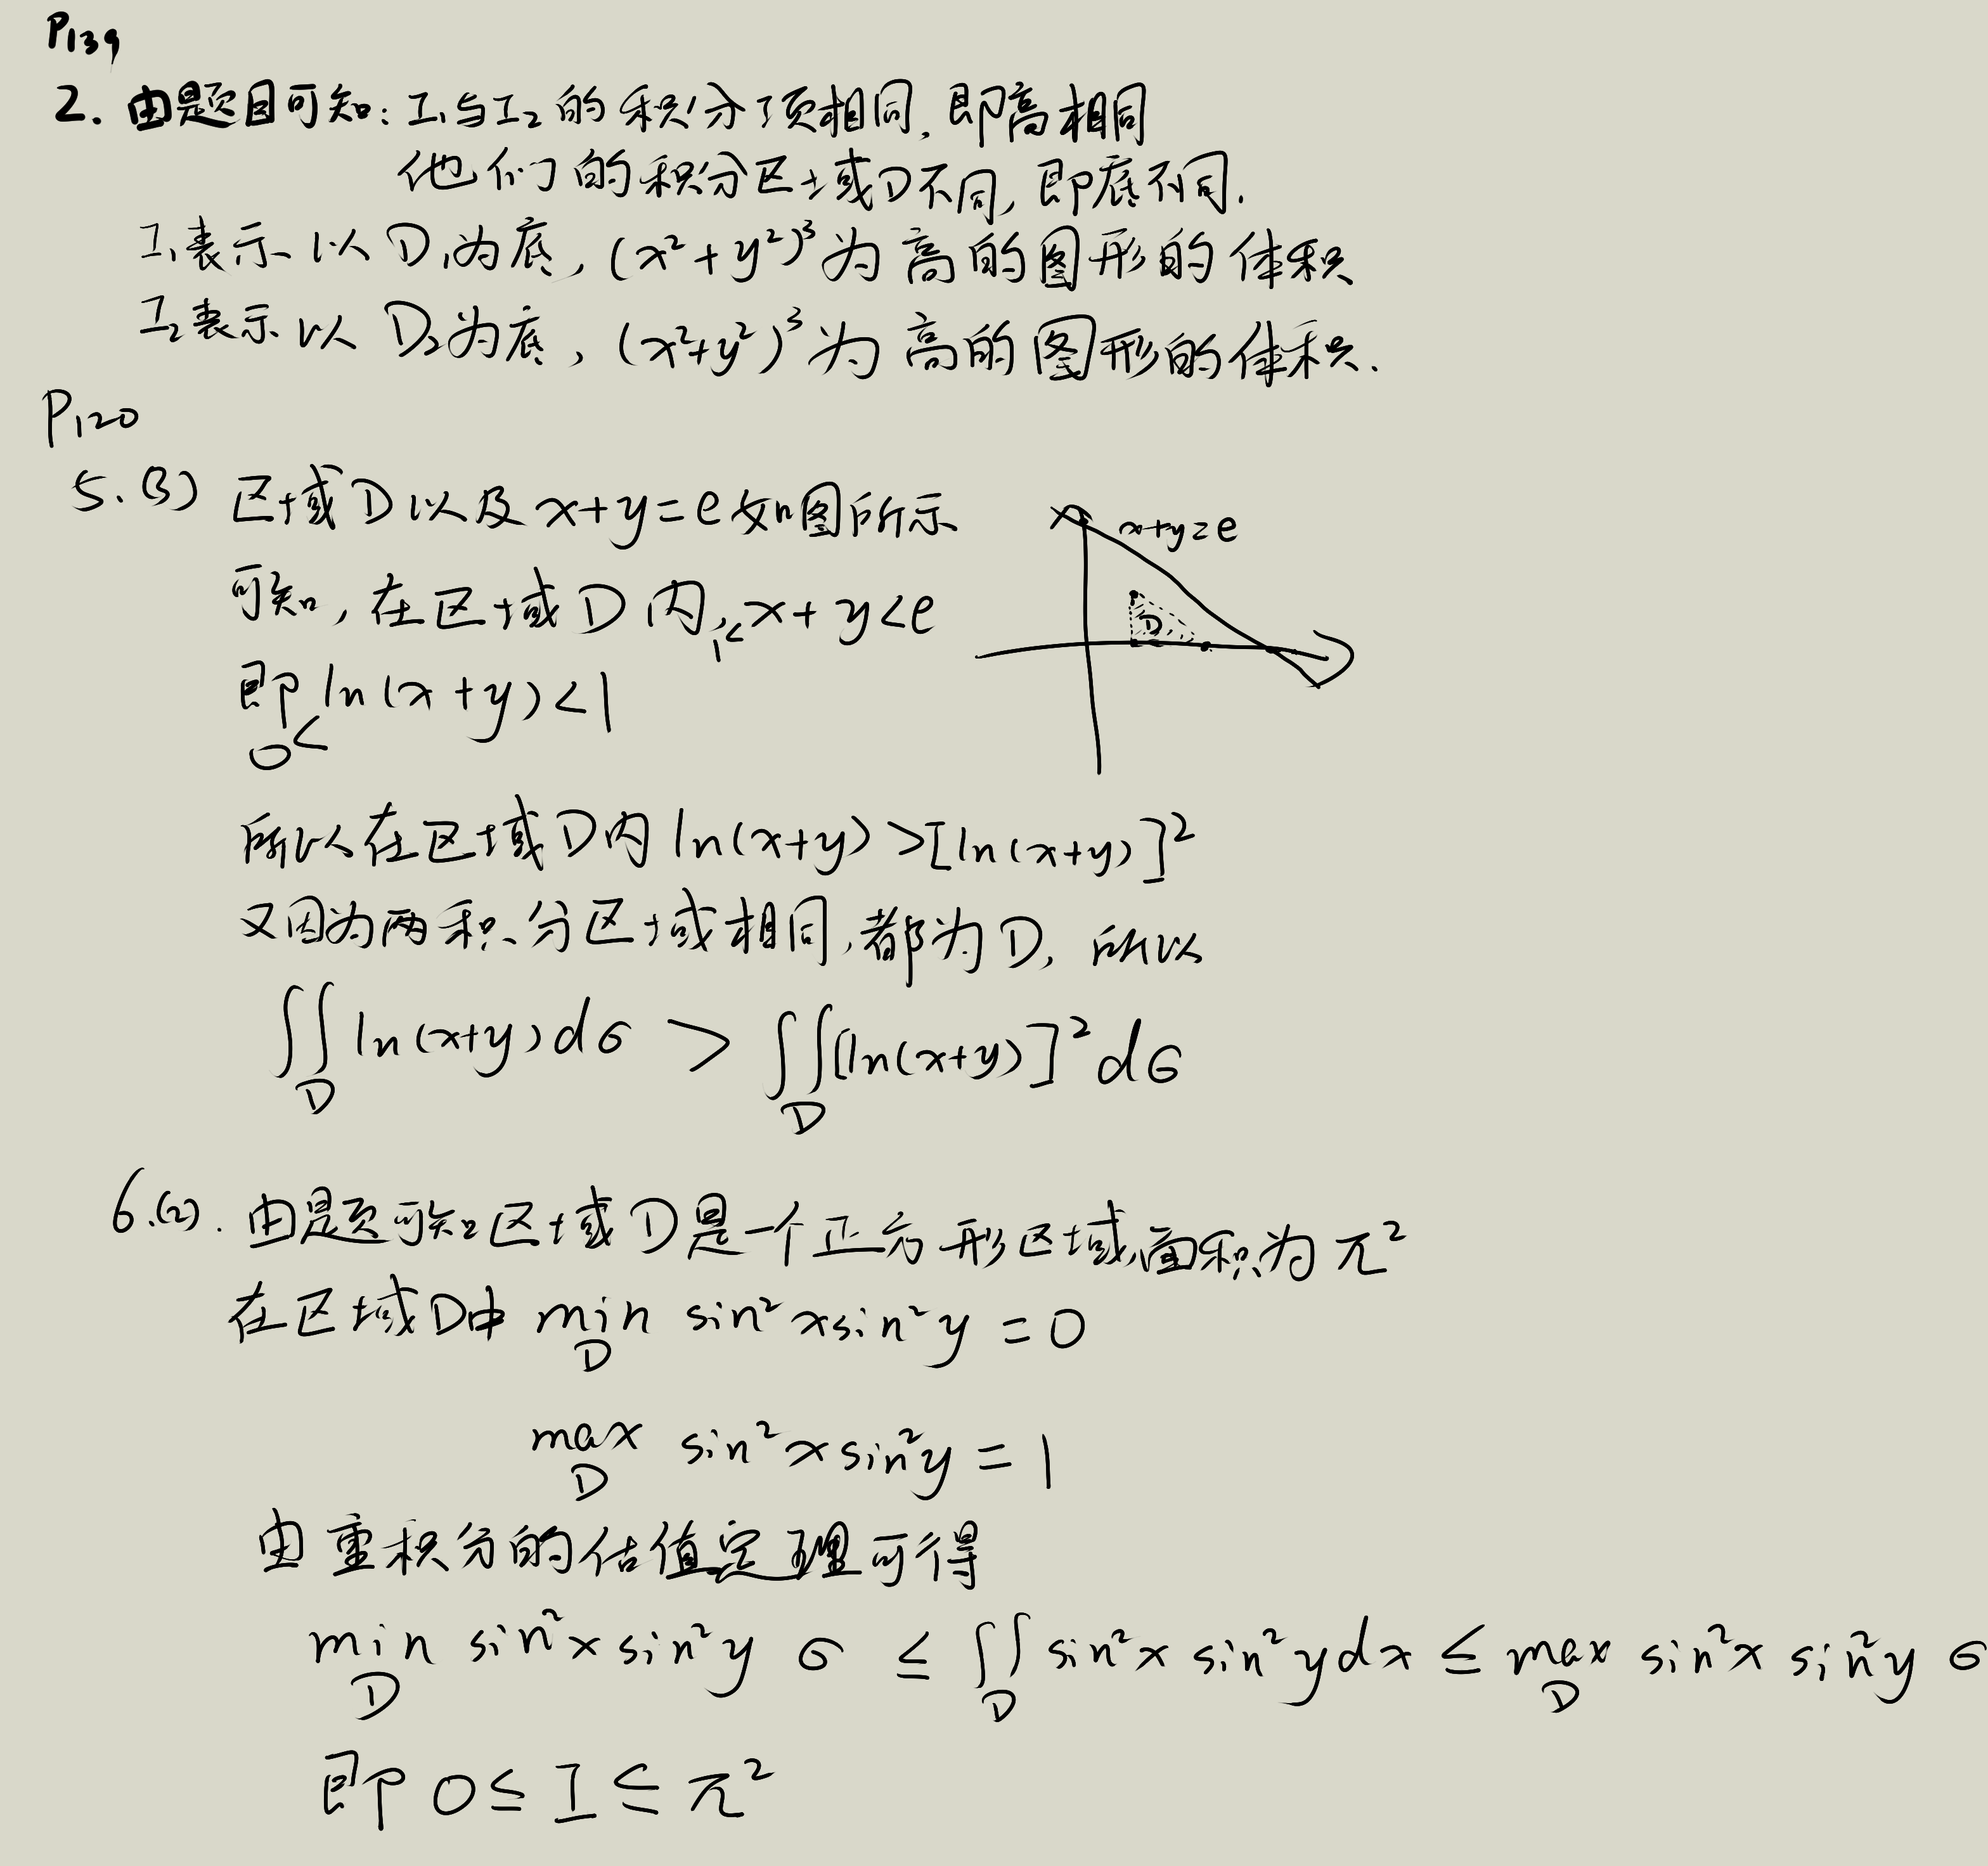 P139
2. 由题目可知: I₁与I₂的积分项相同, 即高相同
他们的积分区域D不同, 即底不同.
I₁表示以D₁为底, (x²+y²)³为高的图形的体积
I₂表示以D₂为底, (x²+y²)³为高的图形的体积.
P120
5. (3) 区域D以及x+y=e如图所示
x+y=e
D
可知, 在区域D内, 1<x+y<e
即 0<ln(x+y)<1
所以在区域D内 ln(x+y)>[ln(x+y)]²
又因为两积分区域相同, 都为D, 所以
∬_D ln(x+y)dσ > ∬_D [ln(x+y)]²dσ
6.(2). 由题可知区域D是一个正方形区域, 面积为π²
在区域D中 min_D sin²xsin²y=0
max_D sin²xsin²y=1
由重积分的估值定理可得
min_D sin²xsin²y σ ≤ ∬_D sin²x sin²ydx ≤ max_D sin²x sin²y σ
即 0≤I≤π²